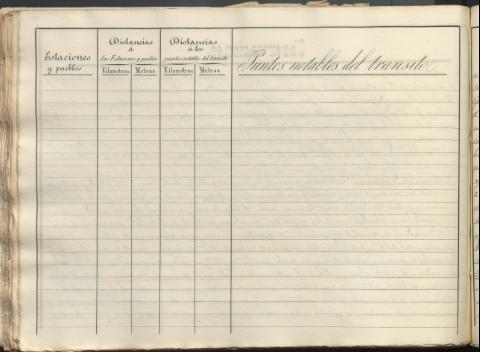 Estaciones
y pueblos
Distancias
á
las Estaciones y pueblos
Kilometros Metros
Distancias
á los
puntos notables del tránsito
Kilometros Metros
Puntos notables del transito